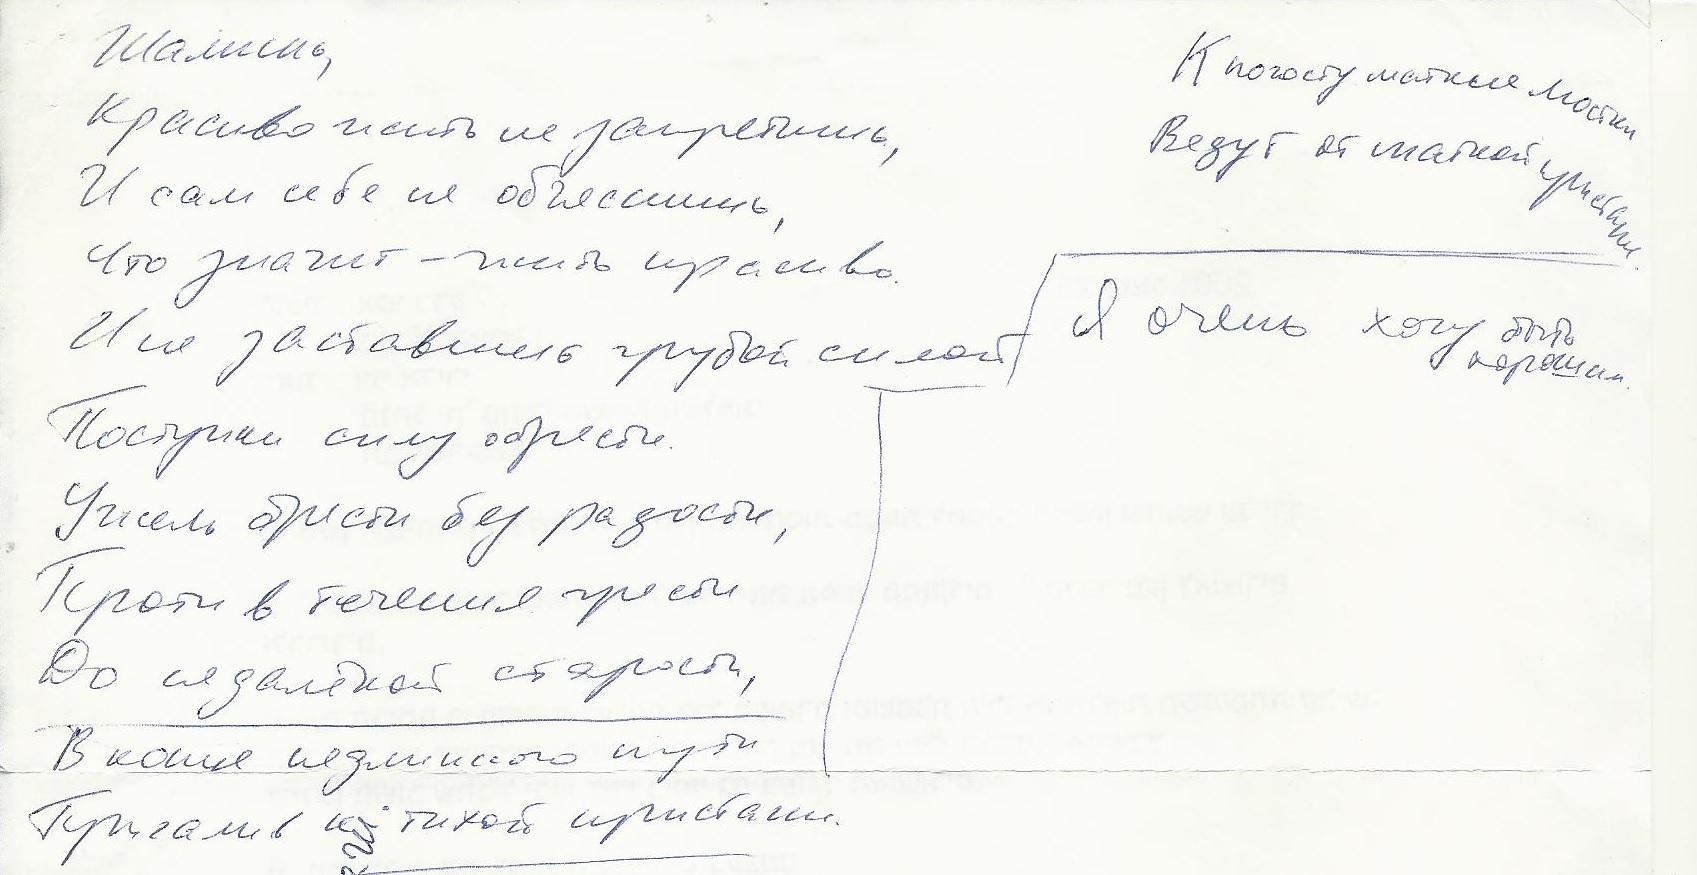 Шалишь,
Красиво жить не запретишь,
И сам себе не объяснишь,
Что значит – жить красиво.
И не заставишь грубой силой
Поступки силу обрести.
Ужель брести без радости,
Против течения грести
До недалёкой старости,
В конце недлинного пути
Причалив к тихой пристани.
К погосту шаткие мостки
Ведут от шаткой пристани.
Я очень хочу быть
хорошим.